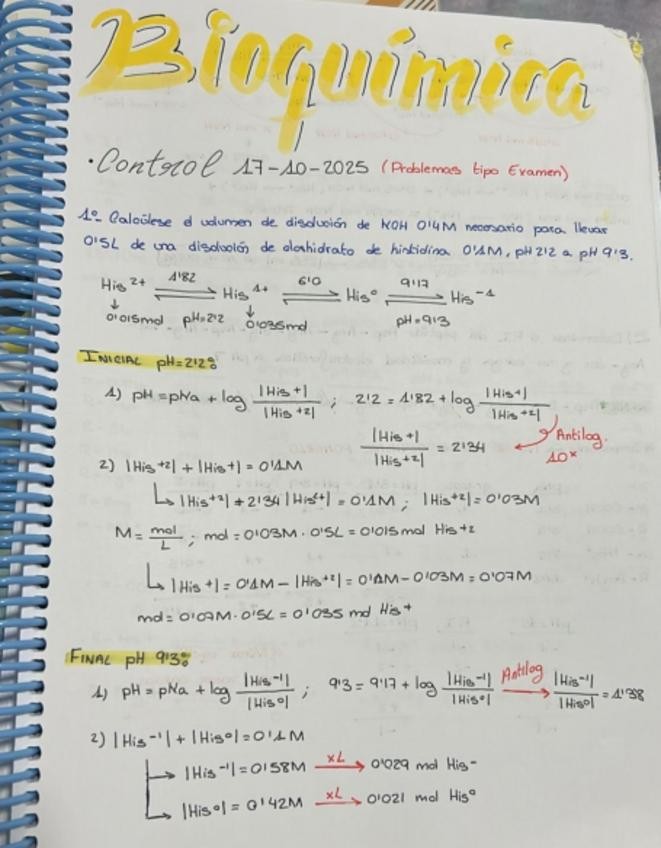 Bioquímica
· Control 17-10-2025 (Problemas tipo Examen)
1º Calcúlese el volumen de disolución de KOH 0'4M necesario para llevar
0'5L de una disolución de clorhidrato de histidina 0'1M, pH 2'12 a pH 9'3.
His 2+ ⇌ 1'82 His 1+ ⇌ 6'0 His 0 ⇌ 9'17 His -1
↓ ↓
0'015mol pH=2'12 0'035mol pH=9'3
INICIAL pH=2'12:
1) pH = pKa + log |His+| / |His+2| ; 2'12 = 1'82 + log |His+| / |His+2|
|His+| / |His+2| = 2'34 Antilog. 10ˣ
2) |His+2| + |His+| = 0'1M
↳ |His+2| + 2'34 |His+| = 0'1M ; |His+2| = 0'03M
M = mol / L ; mol = 0'03M · 0'5L = 0'015 mol His+2
↳ |His+| = 0'1M - |His+2| = 0'1M - 0'03M = 0'07M
mol = 0'07M · 0'5L = 0'035 mol His+
FINAL pH 9'3:
1) pH = pKa + log |His-1| / |His0| ; 9'3 = 9'17 + log |His-1| / |His0| Antilog → |His-1| / |His0| = 1'38
2) |His-1| + |His0| = 0'1M
→ |His-1| = 0'58M xL → 0'029 mol His-
↳ |His0| = 0'42M xL → 0'021 mol His0